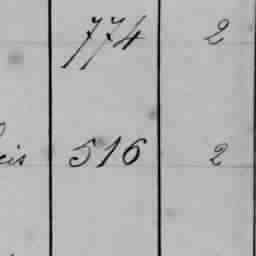 774 2
516 2